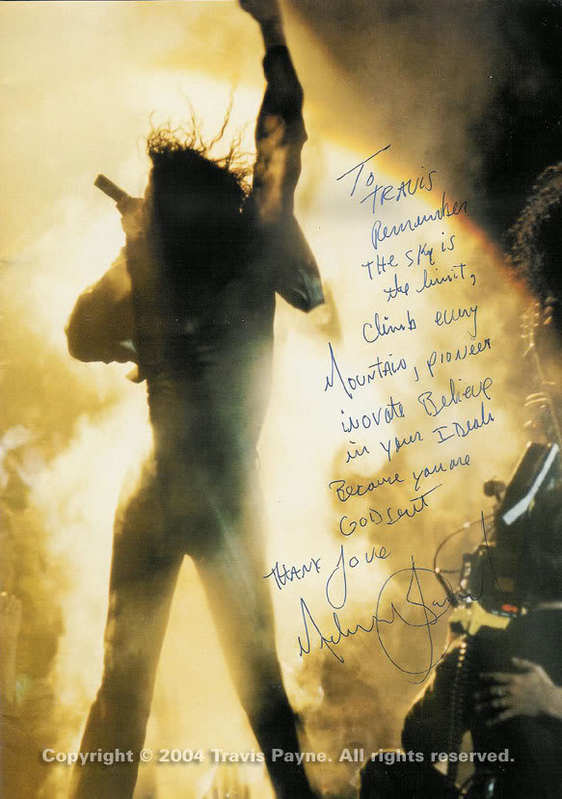 To
TRAVIS
Remember
THE SKY is
the limit,
Climb every
MOUNTAIN, pioneer
inovate Believe
in your IDeals
Because you are
GODSENT
THANK Love
Copyright © 2004 Travis Payne. All rights reserved.